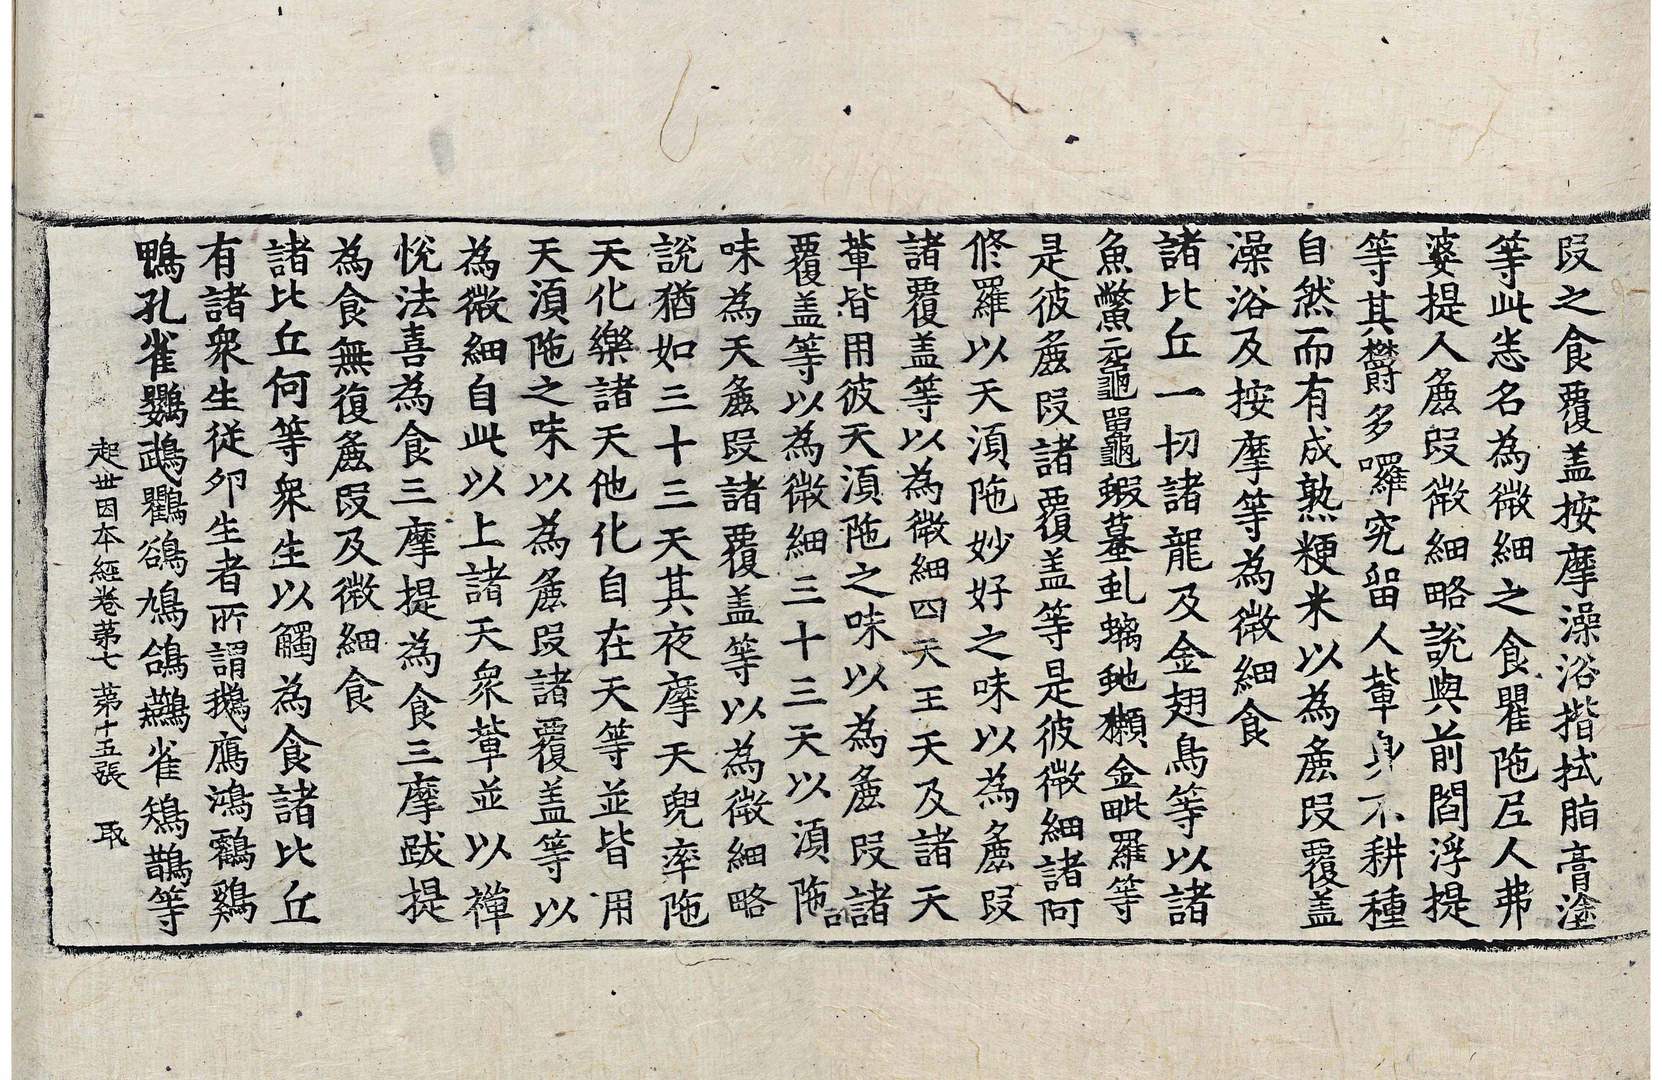 段之食覆盖按摩澡浴揩拭脂膏塗
等此恙名為微細之食瞿陁尼人弗
婆提人麁段微細略說與前閻浮提
等其欝多囉究留人輩身不耕種
自然而有成熟粳米以為麁段覆盖
澡浴及按摩等為微細食
諸比丘一切諸龍及金翅鳥等以諸
魚鼈黿龜鼉鼉蝦蟇虬螭虵獺金毗羅等
是彼麁段諸覆盖等是彼微細諸阿
修羅以天湏陁妙好之味以為麁段
諸覆盖等以為微細四天王天及諸天
輩皆用彼天湏陁之味以為麁段諸
覆盖等以為微細三十三天以湏陁諸
味為天麁段諸覆盖等以為微細略
說猶如三十三天其夜摩天兜率陁
天化樂諸天他化自在天等並皆用
天湏陁之味以為麁段諸覆盖等以
為微細自此以上諸天眾輩並以禪
悅法喜為食三摩提為食三摩跋提
為食無復麁段及微細食
諸比丘何等眾生以觸為食諸比丘
有諸眾生從卵生者所謂鵝鴈鴻鸖鷄
鴨孔雀鸚鵡鸜鵒鳩鴿鷰雀雉鵲等
起世因本經卷苐七 苐十五張 取